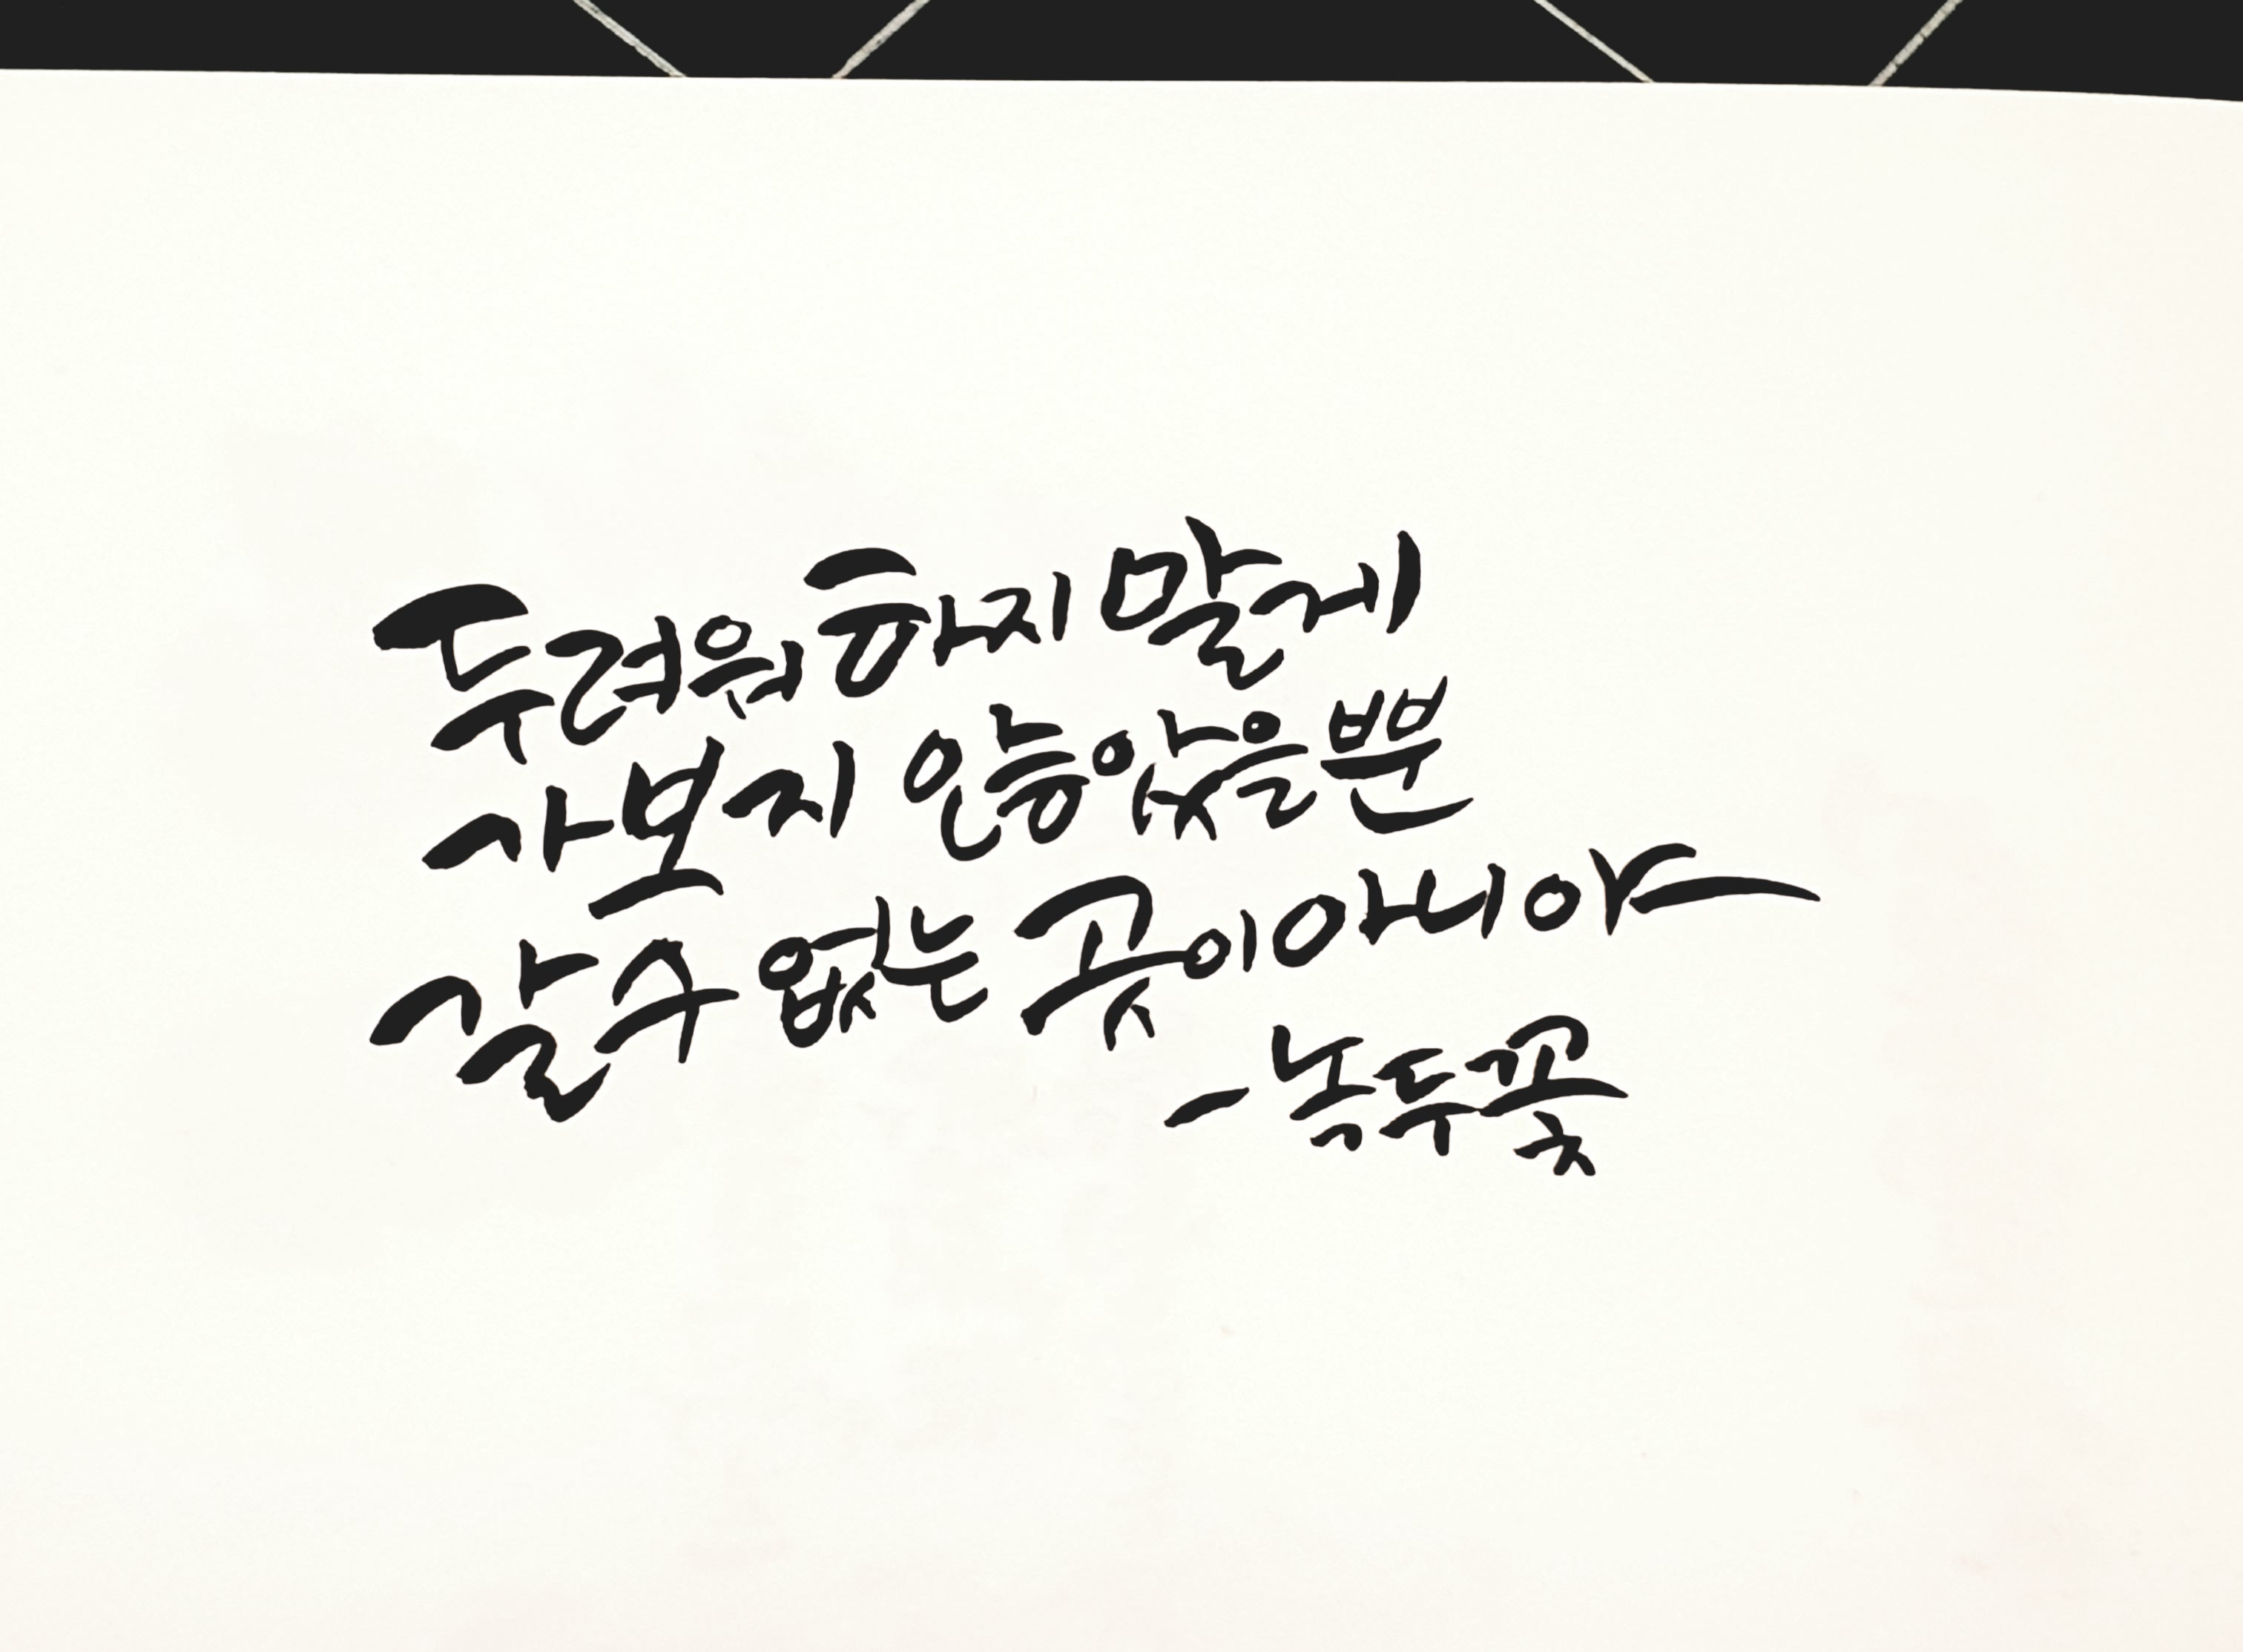 두려워 하지 말게
가보지 않았을뿐
갈 수 없는 곳이 아니야
- 녹두꽃